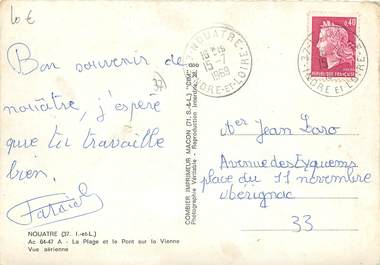 10 €
Bon souvenir de
nouâtre, j'espère
que tu travaille
bien.
NOUATRE (37. I.-et-L.)
Ac 64-47 A - La Plage et le Pont sur la Vienne
Vue aérienne
COMBIER IMPRIMEUR MACON (71. S.-&-L.) "CIM"
Photographie Véritable - Reproduction interdite
NOUATRE
15-7
1969
INDRE-ET-LOIRE
0,40
REPUBLIQUE FRANÇAISE
INDRE ET LOIRE
Jean Laro
Avenue des Eyquems
place du 11 novembre
Mérignac
33